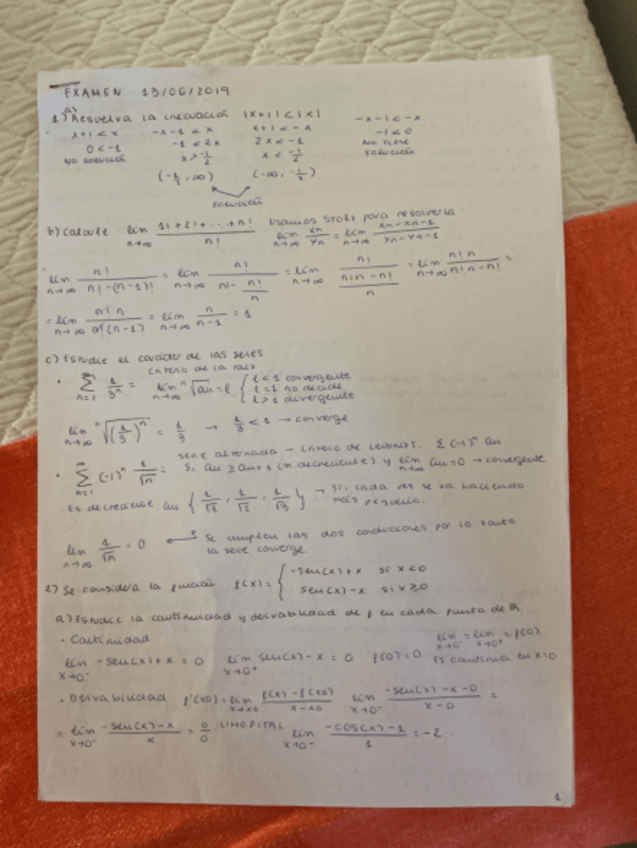 EXAMEN 13/06/2019
1) a) Resuelva la inecuación |x+1| < |x|
x+1 < x   -x-1 < x   x+1 < -x   -x-1 < -x
0 < -1   -1 < 2x   2x < -1   -1 < 0
No solución   x > -1/2   x < -1/2   No tiene solución
(-1/2, ∞)   (-∞, -1/2)
solución
b) Calcule lim n→∞ (1! + 2! + ... + n!)/n!   Usamos Stolz para resolverla   lim n→∞ xn/yn = lim n→∞ (xn - xn-1)/(yn - yn-1)
lim n→∞ n!/(n! - (n-1)!) = lim n→∞ n!/(n - n!/n) = lim n→∞ n!/((n!n - n!)/n) = lim n→∞ n!n/(n!n - n!) =
= lim n→∞ n!n/(n!(n-1)) = lim n→∞ n/(n-1) = 1
c) Estudie el carácter de las series
criterio de la raíz
· ∞Σn=1 1/3ⁿ = lim n→∞ ⁿ√an = l { l < 1 convergente
l = 1 no decide
l > 1 divergente
lim n→∞ ⁿ√(1/3)ⁿ = 1/3 → 1/3 < 1 → converge
serie alternada - criterio de Leibniz. Σ(-1)ⁿ·an
· ∞Σn=1 (-1)ⁿ 1/√n = Si an ≥ an+1 (m.decreciente) y lim n→∞ an = 0 → convergente
Es decreciente an { 1/√1, 1/√2, 1/√3 } → Sí, cada vez se va haciendo
más pequeño.
lim n→∞ 1/√n = 0   Se cumplen las dos condiciones por lo tanto
la serie converge.
2) Se considera la función f(x) = { -sen(x)+x si x<0
sen(x)-x si x≥0
a) Estudie la continuidad y derivabilidad de f en cada punto de R
· Continuidad   lim x→0⁻ = lim x→0⁺ = f(0)
lim x→0⁻ -sen(x)+x = 0   lim x→0⁺ sen(x)-x = 0   f(0)=0   Es continua en x=0
· Derivabilidad f'(x0) = lim x→x0 (f(x)-f(x0))/(x-x0)   lim x→0⁻ (-sen(x)-x-0)/(x-0) =
= lim x→0⁻ (-sen(x)-x)/x = 0/0 L'HOPITAL lim x→0⁻ (-cos(x)-1)/1 = -2
1